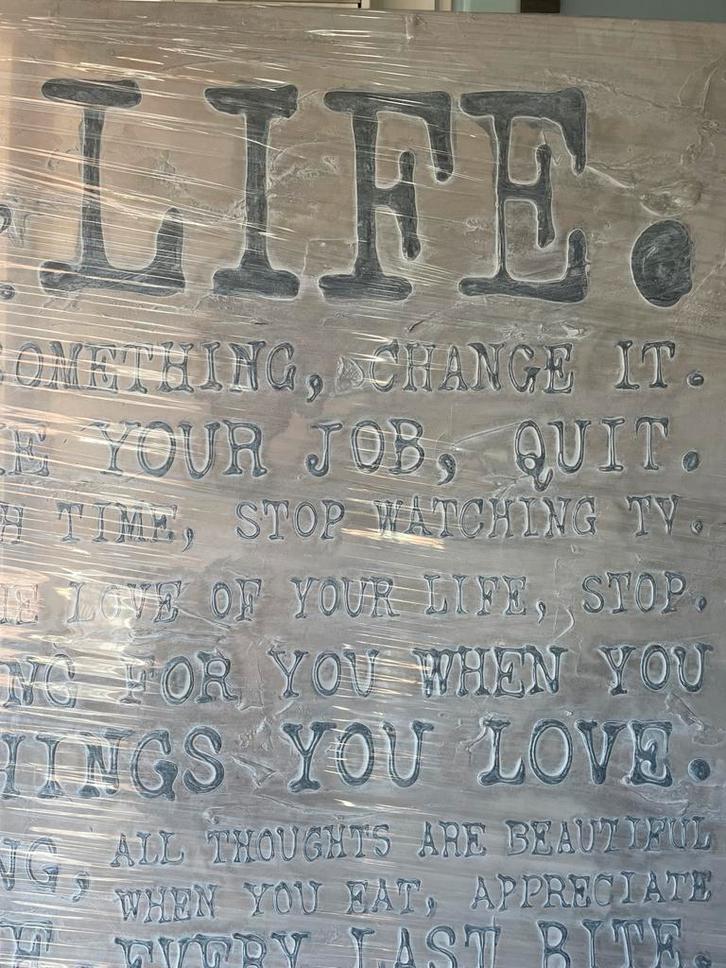 LIFE.
SOMETHING, CHANGE IT.
YOUR JOB, QUIT.
TIME, STOP WATCHING TV.
LOVE OF YOUR LIFE, STOP.
FOR YOU WHEN YOU
YOU LOVE.
ALL THOUGHTS ARE BEAUTIFUL
WHEN YOU EAT, APPRECIATE
EVERY LAST BITE.